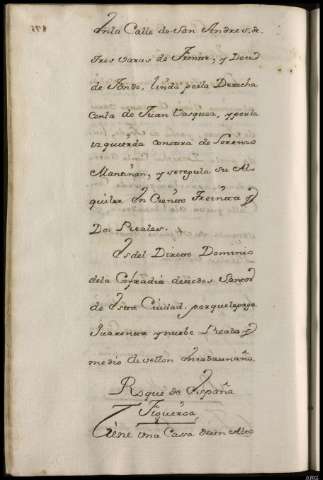 En la Calle de San Andres, de
tres varas de Frente, y Doce
de Fondo, linda por la Derecha
con la de Juan Vasquez, y por la
izquierda con casa de Lorenzo
Mantiñan, y se regula su Al-
quiler en Ciento treinta y
Dos Reales.
Es del Directo Dominio
de la Cofradia de todos Santos
de esta Ciudad, porque le paga
Quarenta y nuebe Reales y
medio de vellon en cada un año
Roque de España
Figueroa
Tiene una Cassa de un Alto